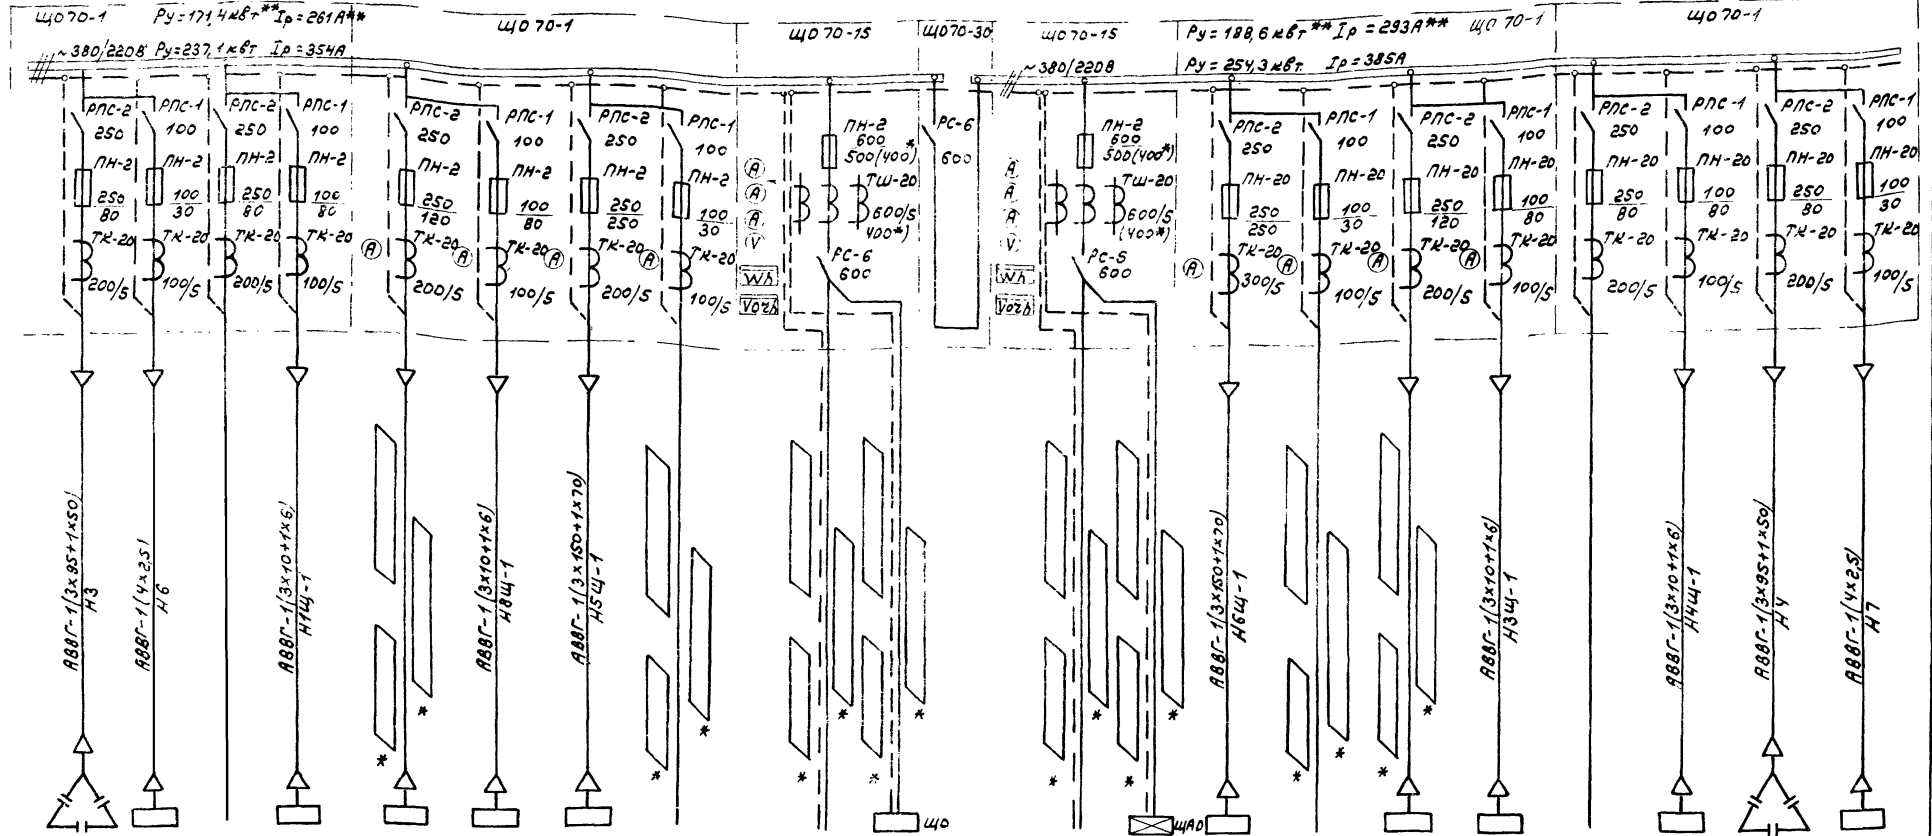 ЩО70-1
Ру=171,4кВт** Iр=261А**
ЩО70-1
ЩО70-15
ЩО70-30
ЩО70-15
Ру=188,6кВт** Iр=293А**
ЩО70-1
ЩО70-1
~380/220В Ру=237,1кВт Iр=354А
~380/220В
Ру=254,3кВт Iр=385А
РПС-2
250
ПН-2
250
80
ТК-20
200/5
РПС-1
100
ПН-2
100
30
ТК-20
100/5
РПС-2
250
ПН-2
250
80
ТК-20
200/5
РПС-1
100
ПН-2
100
80
ТК-20
100/5
А
РПС-2
250
ПН-2
250
120
ТК-20
200/5
А
РПС-1
100
ПН-2
100
80
ТК-20
100/5
А
РПС-2
250
ПН-2
250
250
ТК-20
200/5
А
РПС-1
100
ПН-2
100
30
ТК-20
100/5
А
А
А
V
Wh
Varh
ПН-2
600
500(400*)
ТШ-20
600/5
400*)
РС-6
600
РС-6
600
А
А
А
V
Wh
Varh
ПН-2
600
500(400*)
ТШ-20
600/5
(400*)
РС-6
600
А
РПС-2
250
ПН-20
250
250
ТК-20
300/5
А
РПС-1
100
ПН-20
100
30
ТК-20
100/5
А
РПС-2
250
ПН-20
250
120
ТК-20
200/5
А
РПС-1
100
ПН-20
100
80
ТК-20
100/5
РПС-2
250
ПН-20
250
80
ТК-20
200/5
РПС-1
100
ПН-20
100
80
ТК-20
100/5
РПС-2
250
ПН-20
250
80
ТК-20
200/5
РПС-1
100
ПН-20
100
30
ТК-20
100/5
АВВГ-1(3х95+1х50)
Н3
АВВГ-1(4х2,5)
Н6
АВВГ-1(3х10+1х6)
Н1Щ-1
*
*
АВВГ-1(3х10+1х6)
Н8Щ-1
АВВГ-1(3х150+1х70)
Н5Щ-1
*
*
*
*
*
*
ЩО
*
*
*
*
ЩАО
АВВГ-1(3х150+1х70)
Н6Щ-1
*
*
*
*
АВВГ-1(3х10+1х6)
Н3Щ-1
АВВГ-1(3х10+1х6)
Н4Щ-1
АВВГ-1(3х95+1х50)
Н4
АВВГ-1(4х2,5)
Н7